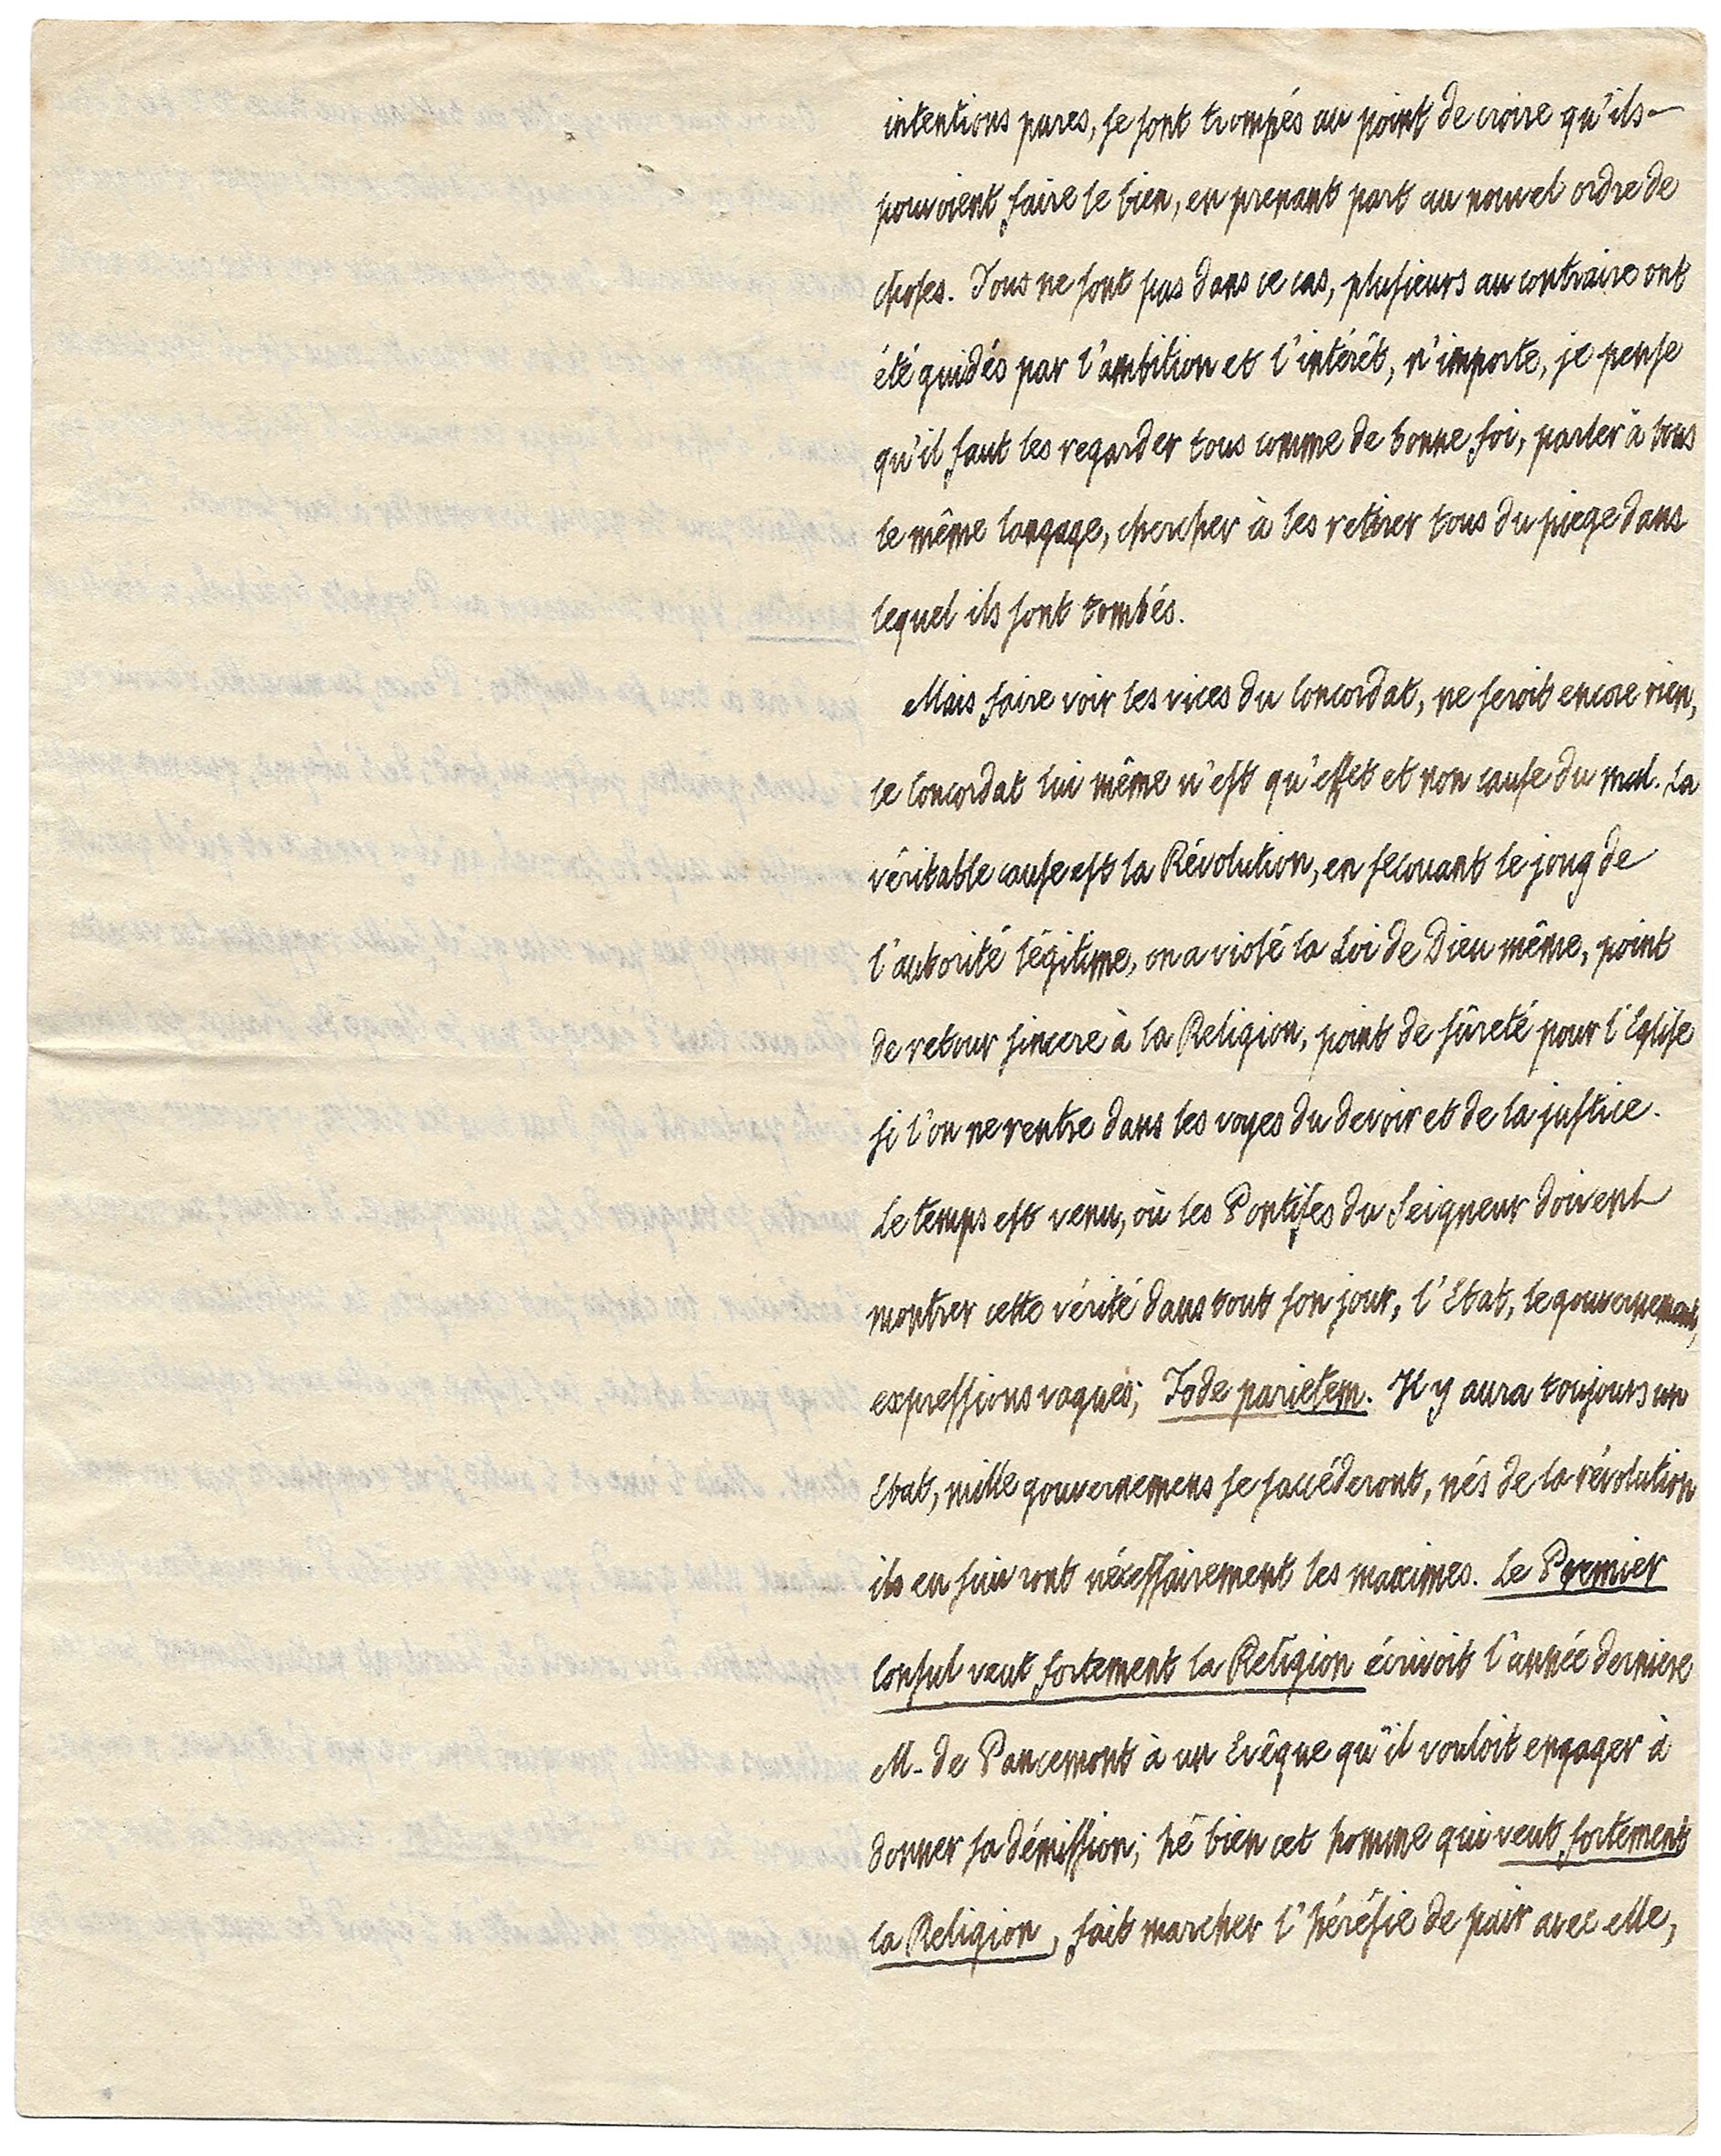 intentions pures, se sont trompés au point de croire qu'ils
pouvoient faire le bien, en prenant part au nouvel ordre de
choses. Tous ne sont pas dans ce cas, plusieurs au contraire ont
été guidés par l'ambition et l'intérêt, n'importe, je pense
qu'il faut les regarder tous comme de bonne foi, parler à tous
le même langage, chercher à les retirer tous du piege dans
lequel ils sont tombés.
Mais faire voir les vices du Concordat, ne seroit encore rien,
le Concordat lui même n'est qu'effet et non cause du mal. La
véritable cause est la Révolution, en secouant le joug de
l'autorité légitime, on a violé la Loi de Dieu même, point
de retour sincere à la Religion, point de sûreté pour l'Eglise
si l'on ne rentre dans les voyes du devoir et de la justice.
Le temps est venu, où les Pontifes du Seigneur doivent
montrer cette vérité dans tout son jour, l'Etat, le gouvernement,
expressions vagues; Fode parietem. Il y aura toujours un
Etat, mille gouvernemens se succéderont, nés de la révolution
ils en suivront nécessairement les maximes. Le Premier
Consul veut fortement la Religion écrivoit l'année derniere
M. de Pancemont à un Evêque qu'il vouloit engager à
donner sa démission; hé bien cet homme qui veut fortement
la Religion, fait marcher l'hérésie de pair avec elle,